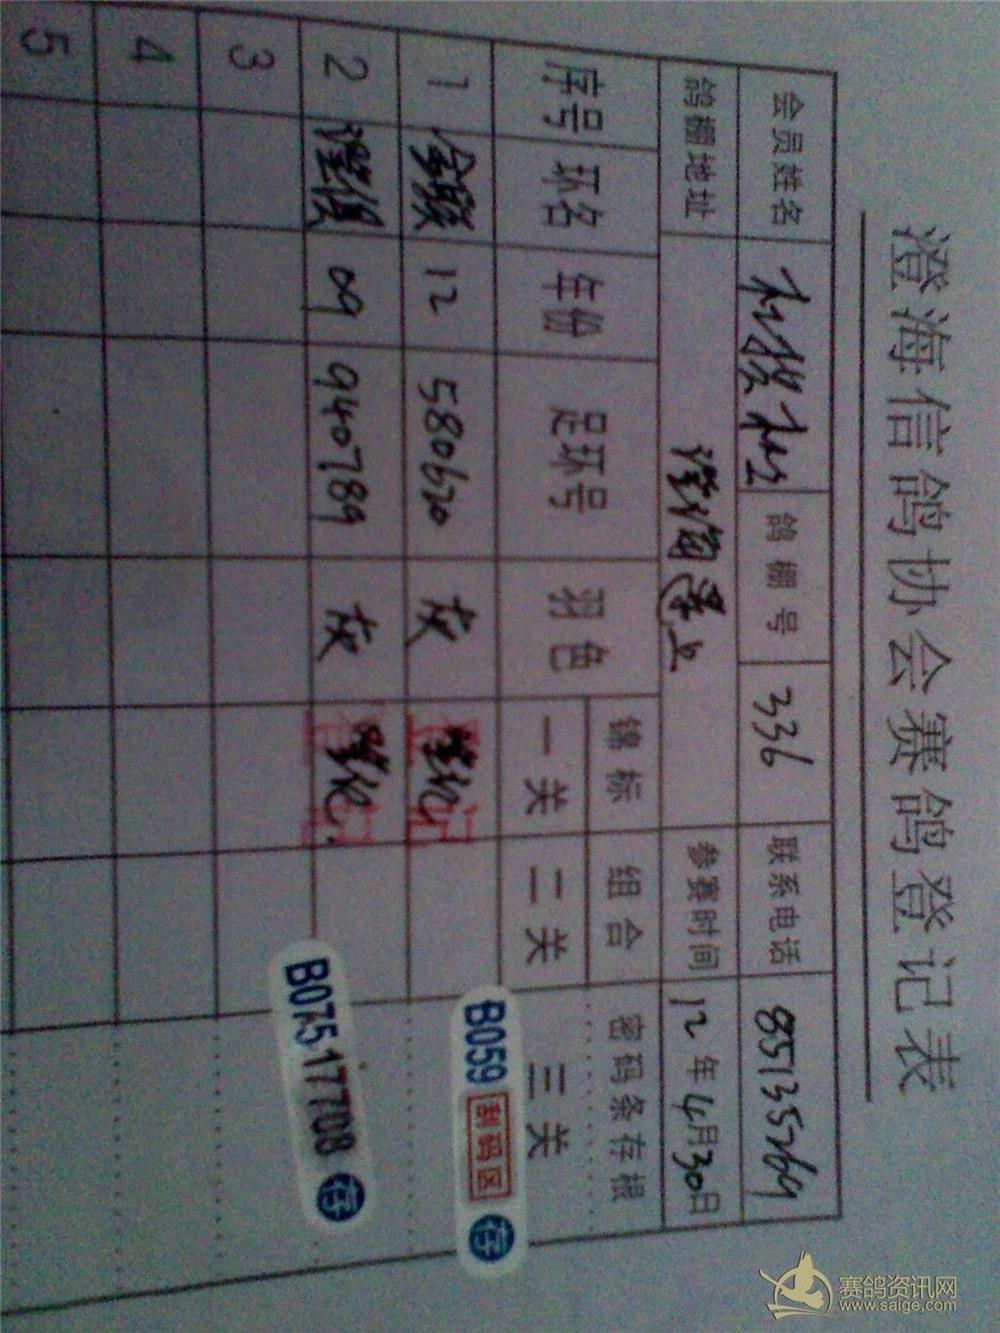 澄海信鸽协会赛鸽登记表
会员姓名 鸽棚号 336 联系电话 85135769
鸽棚地址 参赛时间 12年4月30日
序号 环名 年份 足环号 羽色 锦标 组合 密码条存根
一关 二关 三关
1 12 580620 灰 登记 B059 刮码区 存
2 09 940789 灰 登记 B075177708 存
3
4
5
赛鸽资讯网
www.saige.com